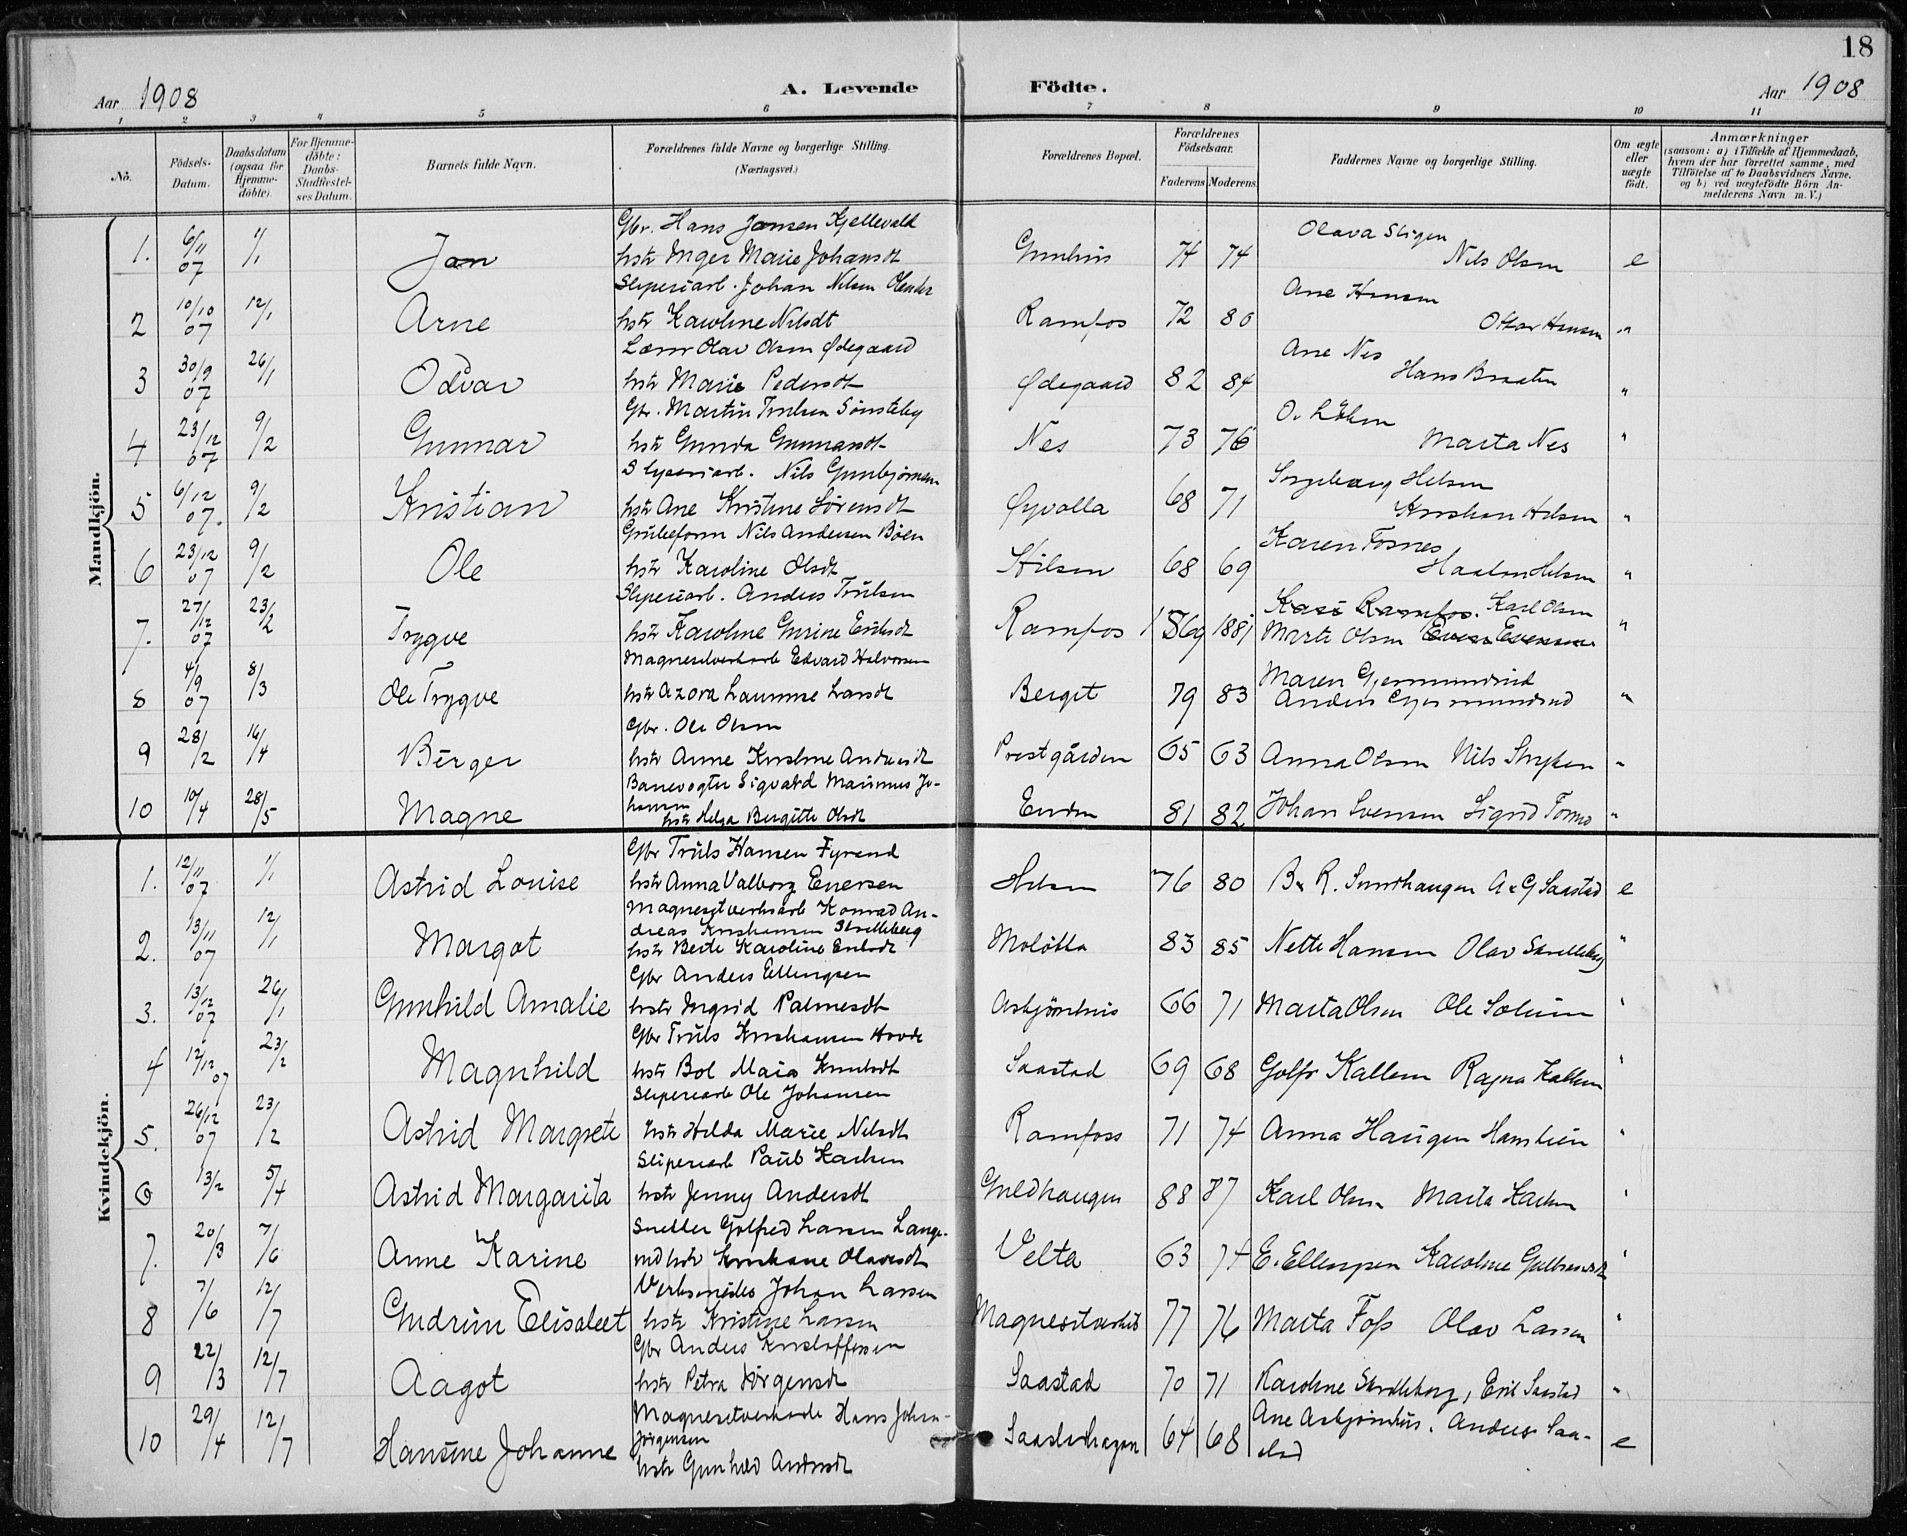 18
Aar 1908 A. Levende Födte. Aar 1908
1 2 3 4 5 6 7 8 9 10 11
No.
Födsels-Datum.
Daabsdatum (ogsaa for Hjemmedöbte).
For Hjemmedöbte: Daabs-Stadfæstelses Datum.
Barnets fulde Navn.
Forældrenes fulde Navne og borgerlige Stilling. (Næringsvei.)
Forældrenes Bopæl.
Forældrenes Födselsaar.
Faderens Moderens
Faddernes Navne og borgerlige Stilling.
Om ægte eller uægte födt.
Anmærkninger
(saasom: a) i Tilfælde af Hjemmedaab, hvem der har forrettet samme, med Tilföielse af to Daabsvidners Navne, og b) ved uægtefödte Börn Anmelderens Navn m. V.)
Mandkjön.
Gbr. Hans Jansen Kjellevald
1. 6/11 07 1/1 Jan hstr Inger Marie Johansdt 74 74 Olava Nils Olsen e
Sliperiarb. Johan Nilsen
2 10/10 07 12/1 Arne hstr Karoline Nilsdt Ramfos 72 80 Ane Hansen Oskar Hansen "
Olav Olsen Ødegaard
3 30/9 07 26/1 Odvar hstr Marie Pedersdt Ødegaard 82 84 Ane Nes Hans Braaten "
Gbr. Martin Trulsen Sønsteby
4 23/12 07 9/2 Gunnar hstr Gunda Gunnarsdt Nes 73 76 Marta Nes "
Sliperiarb. Nils Gunbjørnsen
5 6/12 07. 9/2 Kristian hstr Ane Kristine Sørensdt Øyvolla 68 71 "
Grubeform Nils Andersen Böen
6 23/12 07 9/2 Ole hstr Karoline Olsdt 68 69 Karen Fosnes "
Sliperiarb. Anders Trulsen
7. 27/12 07 23/2 Trygve hstr Karoline Gurine Eriksdt Ramfos 1869 1881 Kari Ramfos. Karl Olsen
Marte Olsen Even Evensen "
Magnesitverksarb Edvard Halvorsen
8 4/9 07 8/3 Ole Trygve hstr Azora Laumine Larsdt Berget 79 83 Maren Gjermundrud
Anders Gjermundrud "
Gbr. Ole Olsen
9 28/2 16/4 Berger hstr Anne Kristine Andersdt Prestgården 65 63 Anna Olsen Nils Stryken "
Banevogter Sigvald Marinius Jo-
hansen
10 10/4 28/5 Magne hstr Helga Bergitte Olsdt 81 82 Johan Svensen Sigrid "
Kvindekjön.
Gbr Truls Hansen Fyrand
1. 12/11 07 1/1 Astrid Louise hstr Anna Valborg Enersen 76 80 B. R. Sundhaugen A. G Saastad e
Magnesitverksarb Konrad An-
dreas Kristiansen Skrelleberg
2. 13/11 07 12/1 Margot hstr Berte Karoline 83 85 Nette Hansen Olav "
Gbr Anders Ellingsen
3. 13/12 07 26/1 Gunhild Amalie hstr Ingrid Palmesdt Asbjørnhus 66 71 Marta Olsen Ole Solum "
Gbr Truls Kristiansen Hovde
4 12/12 07 23/2 Magnhild hstr Bol Maria Knutsdt Saastad 69 68 Golfr Kallem Ragna Kallem "
Sliperiarb Ole Johansen
5. 26/12 07 23/2 Astrid Margrete hstr Hilda Marie Nilsdt Ramfoss 71 74 Anna Haugen Hans Lien "
Sliperiarb Paul Karlsen
6 13/2 5/4 Astrid Margarita hstr Jenny Andersdt Guldhaugen 88 87 Karl Olsen Marta Karlsen "
Snedker Golfred Larsen Lange-
7. 20/3 7/6 Anne Karine rud hstr Kristiane Olavesdt Velta 63 74 E. Ellingsen Karoline "
Verksmester Johan Larsen
8 7/6 12/7 Gudrun Elisabet hstr Kristine Larsen Magnesitverket 77 76 Marta Foss Olav Larsen "
Gbr Anders Kristoffersen
9 22/3 12/7 Aagot hstr Petra Jörgensdt Saastad 70 71 Karoline Skrelleberg, Erik Saastad "
Magnesitverksarb Hans Johan
Jörgensen
10 29/4 12/7 Hansine Johanne hstr Gunhild Andersdt Saastadhagen 64 68 Ane Asbjørnhus. Anders Saa-
stad e